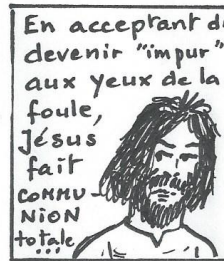 En acceptant d
devenir "impur"
aux yeux de la
foule,
Jésus
fait
COMMU-
NION
totale
...